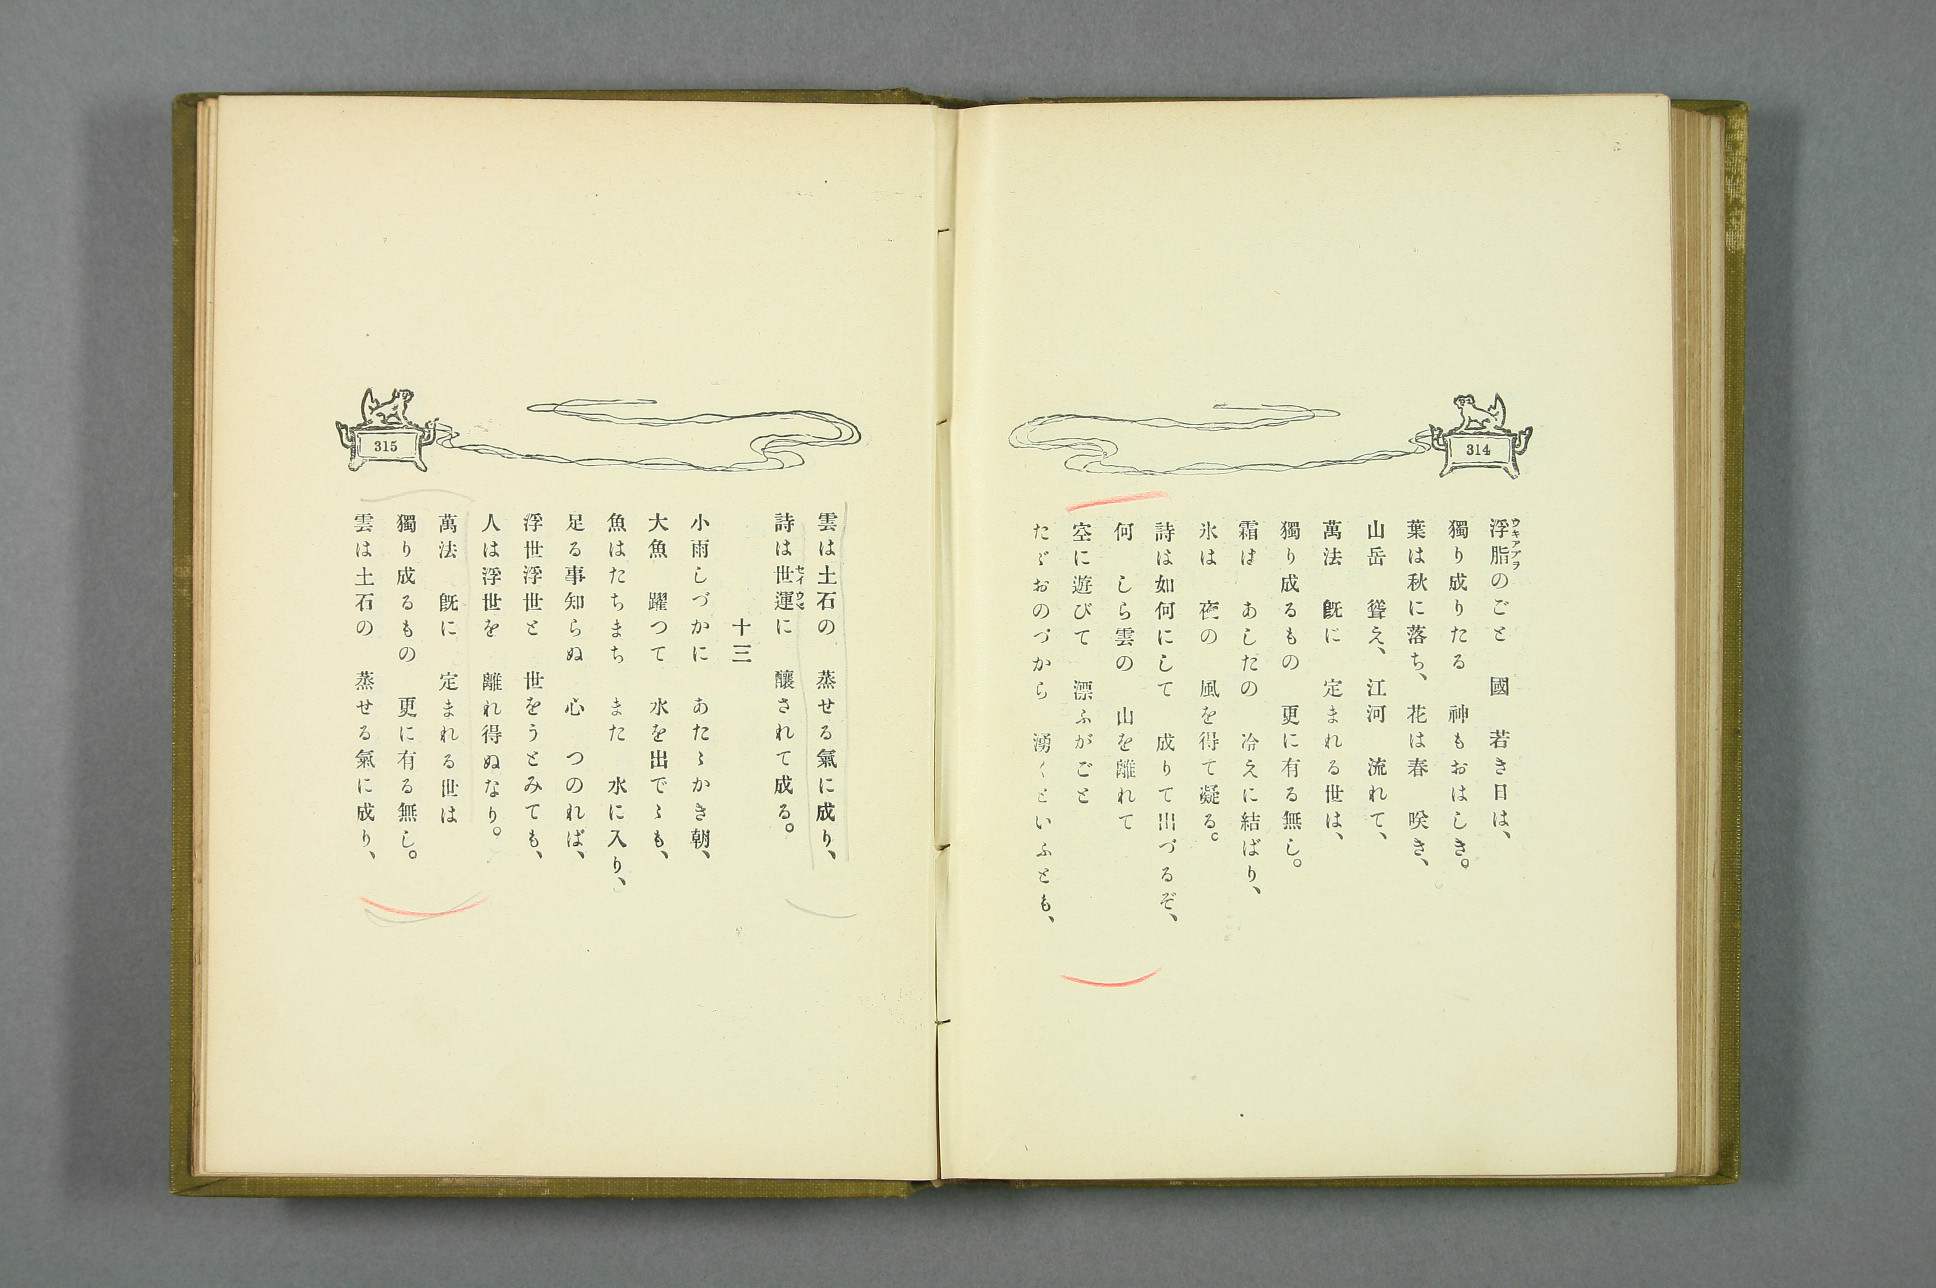 314
浮脂のごと　國　若き日は、
ウキアブラ
獨り成りたる　神もおはしき。
葉は秋に落ち、花は春　咲き、
山岳　聳え、江河　流れて、
萬法　既に　定まれる世は、
獨り成るもの　更に有る無し。
霜は　あしたの　冷えに結ばり、
氷は　夜の　風を得て凝る。
詩は如何にして　成りて出づるぞ、
何　しら雲の　山を離れて
空に遊びて　漂ふがごと
たゞおのづから　湧くといふとも、
315
雲は土石の　蒸せる氣に成り、
詩は世運に　釀されて成る。
十三
小雨しづかに　あたゝかき朝、
大魚　躍つて　水を出でゝも、
魚はたちまち　また　水に入り、
足る事知らぬ　心　つのれば、
浮世浮世と　世をうとみても、
人は浮世を　離れ得ぬなり。
萬法　既に　定まれる世は
獨り成るもの　更に有る無し。
雲は土石の　蒸せる氣に成り、